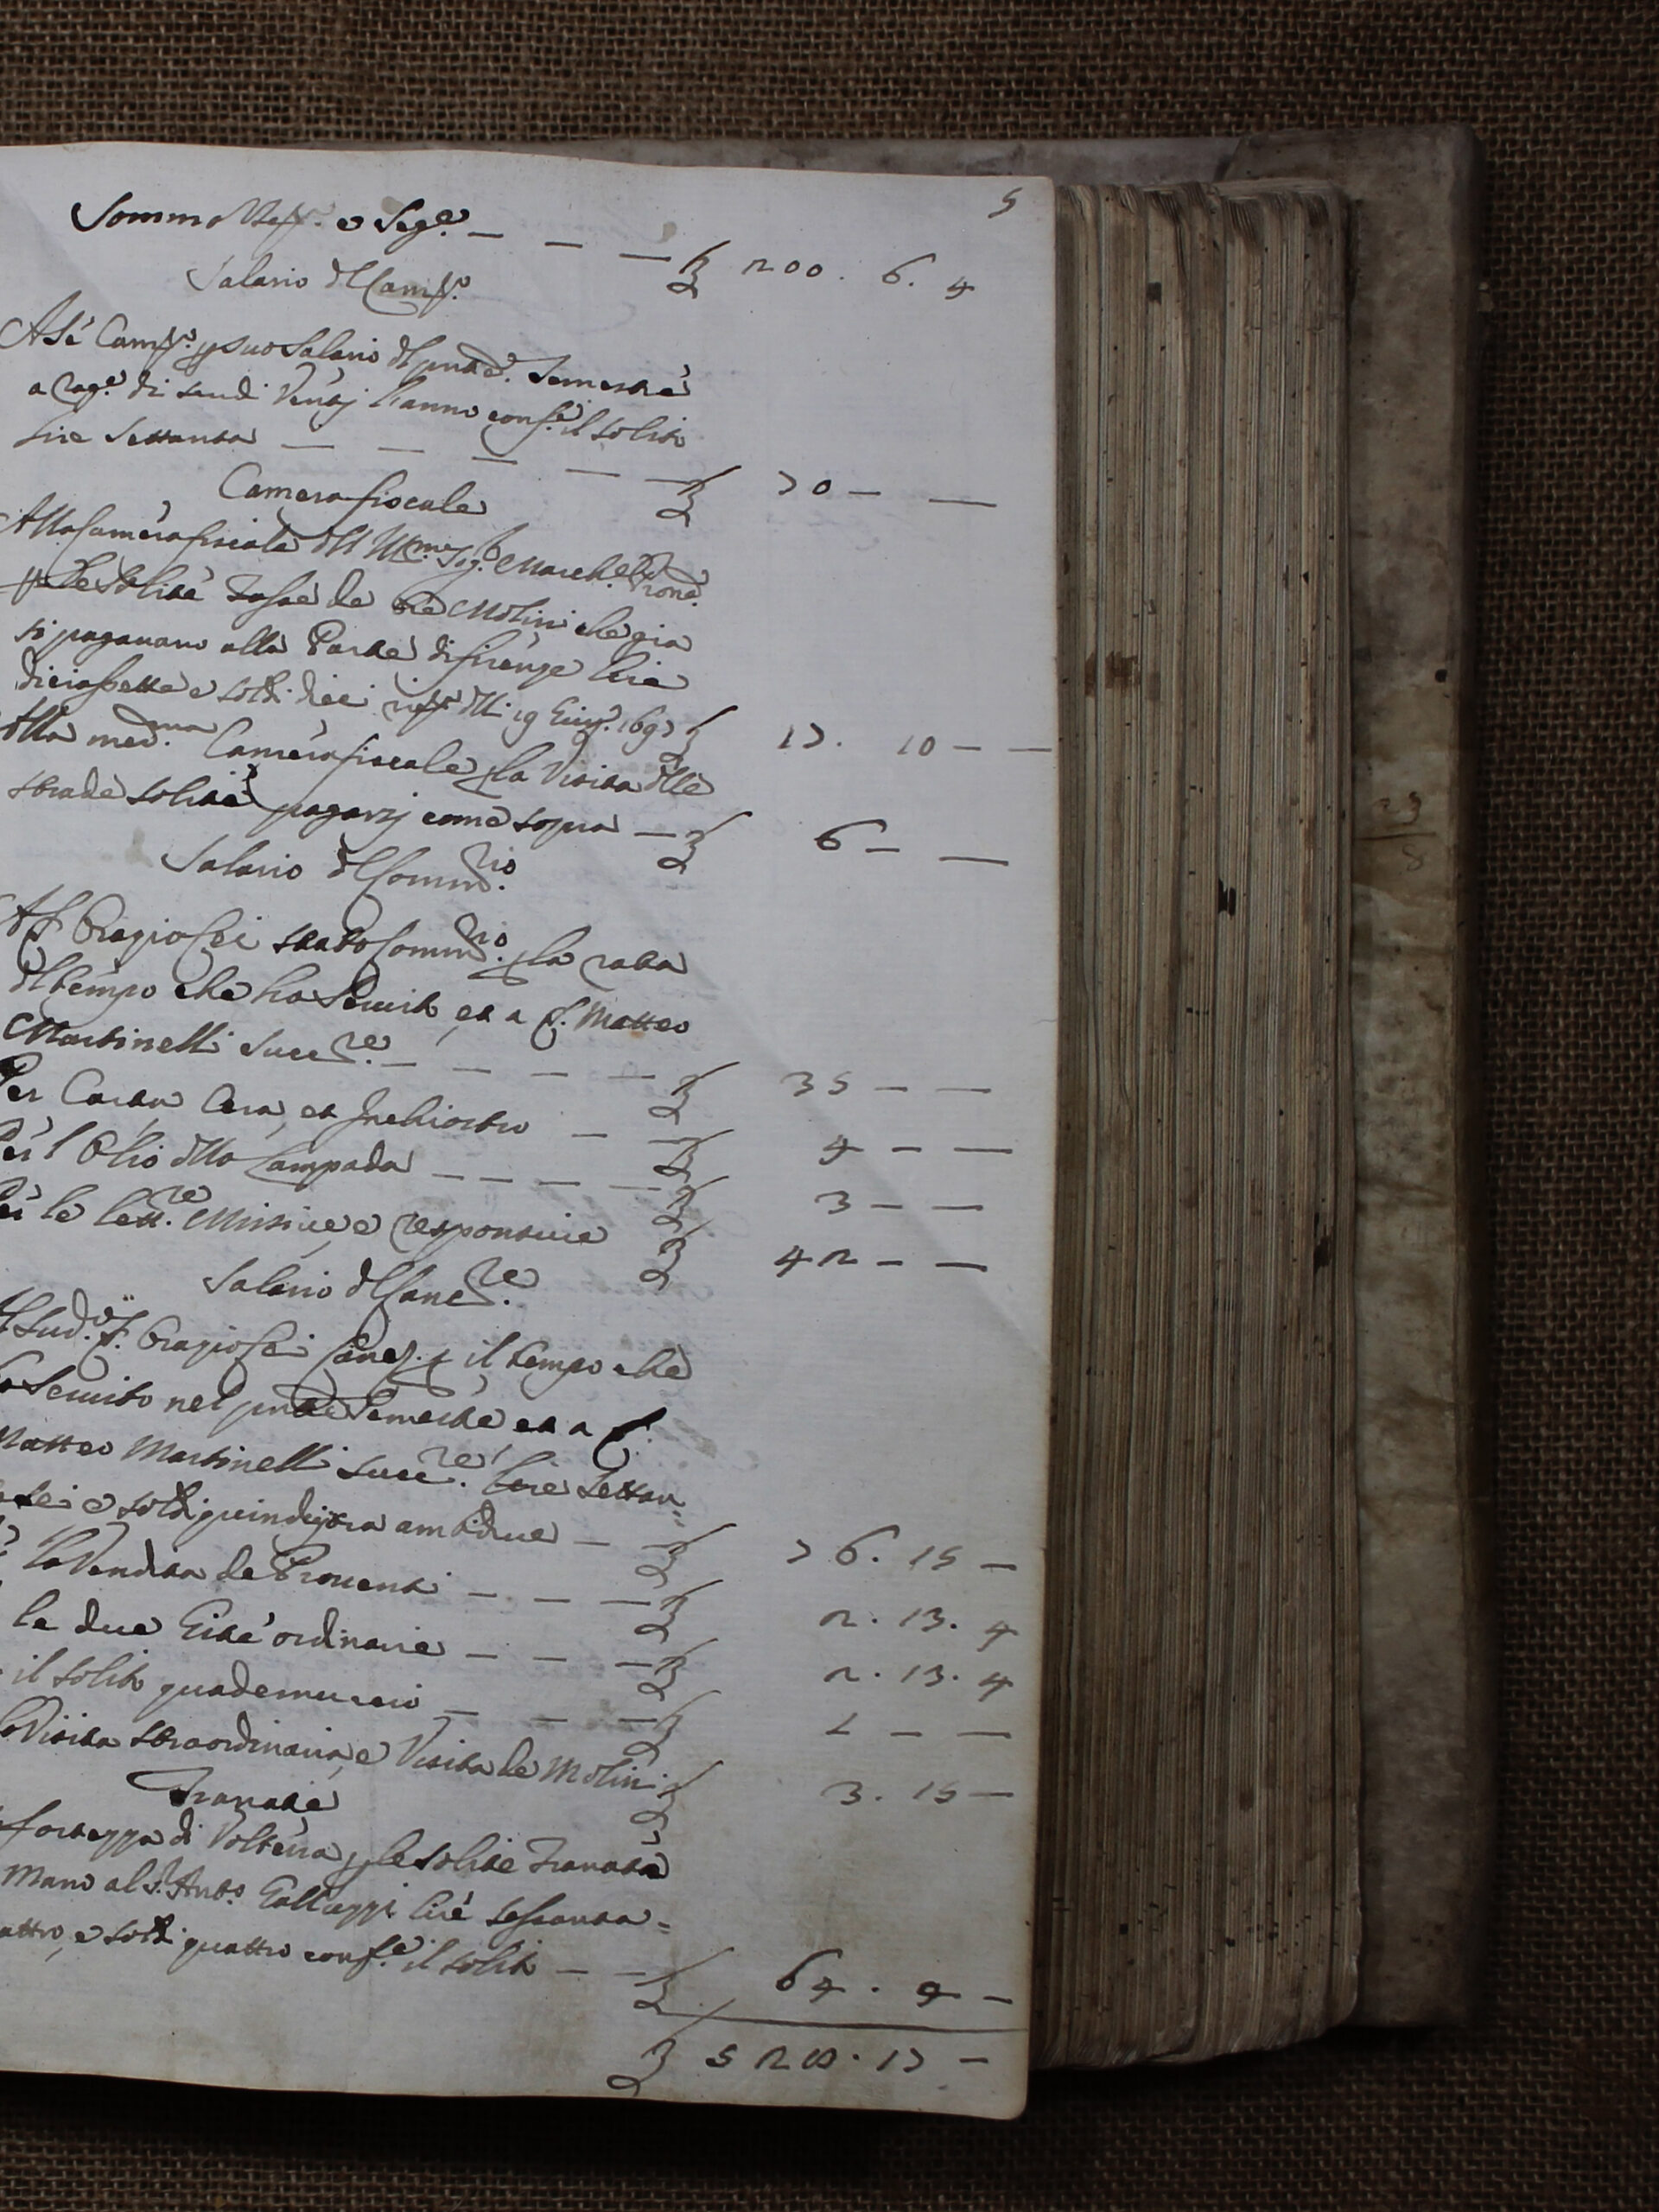 5
Somma e Seg.e — — — £ 200. 6. 4
Salario del Camp.o
Al S.e Camp.o p suo Salario del pnte Semestre
a rag.e di scudi Venti l'anno conf.e il solito
lire settanta — — — — — £ 70 — —
Camera fiscale
Alla Camera fiscale dell Ill.mo Sig.r March.e
p le solite Tasse de Molini che gia
si pagavano alla Parte di firenze lire
diciassette e soldi dieci dlli 19 Giug.o 1697 £ 17. 10 — —
Alla med.ma Camera fiscale p la Visita dlle
strade solite pagarsj come sopra — £ 6 — —
Salario del Comm.rio
A S. Biagio Cei stato Comm.rio p la rata
dl tempo che ha Servito, et a S. Matteo
Martinelli succ.re — — — — £ 35 — —
Per Carta, Cera, et Inchiostro — — £ 4 — —
Per l'Olio dlla Lampada — — — — £ 3 — —
Per le lett.re Missive, e responsive £ 42 — —
Salario del Canc.re
Al Sud.o S. Biagio Cei Canc. p il tempo che
ha Servito nel pnte Semestre et a S.
Matteo Martinelli succ.re lire settan=
tasei e soldi quindici tra ambidue — £ 76. 15 —
la Vendita de Proventi — — — £ 2. 13. 4
le due Gite ordinarie — — — £ 2. 13. 4
il solito quadernuccio — — — £ 1 — —
la Visita straordinaria, e Visita de Molini £ 3. 15 —
Tranate
fortezza di Volterra p le solite Tranate
Mano al S. Ant.o Galluzzi lire sessanta=
attro, e soldi quattro conf.e il solito — — £ 64. 4 —
£ 528. 17 —